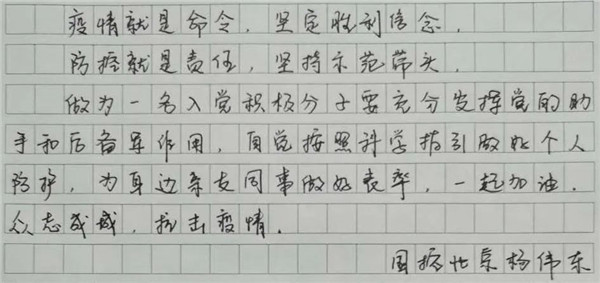 疫情就是命令，坚定胜利信念，
防控就是责任，坚持示范带头，
做为一名入党积极分子要充分发挥党的助
手和后备军作用，自觉按照科学指引做好个人
防护，为身边亲友同事做好表率，一起加油，
众志成城，抗击疫情。
杨伟东